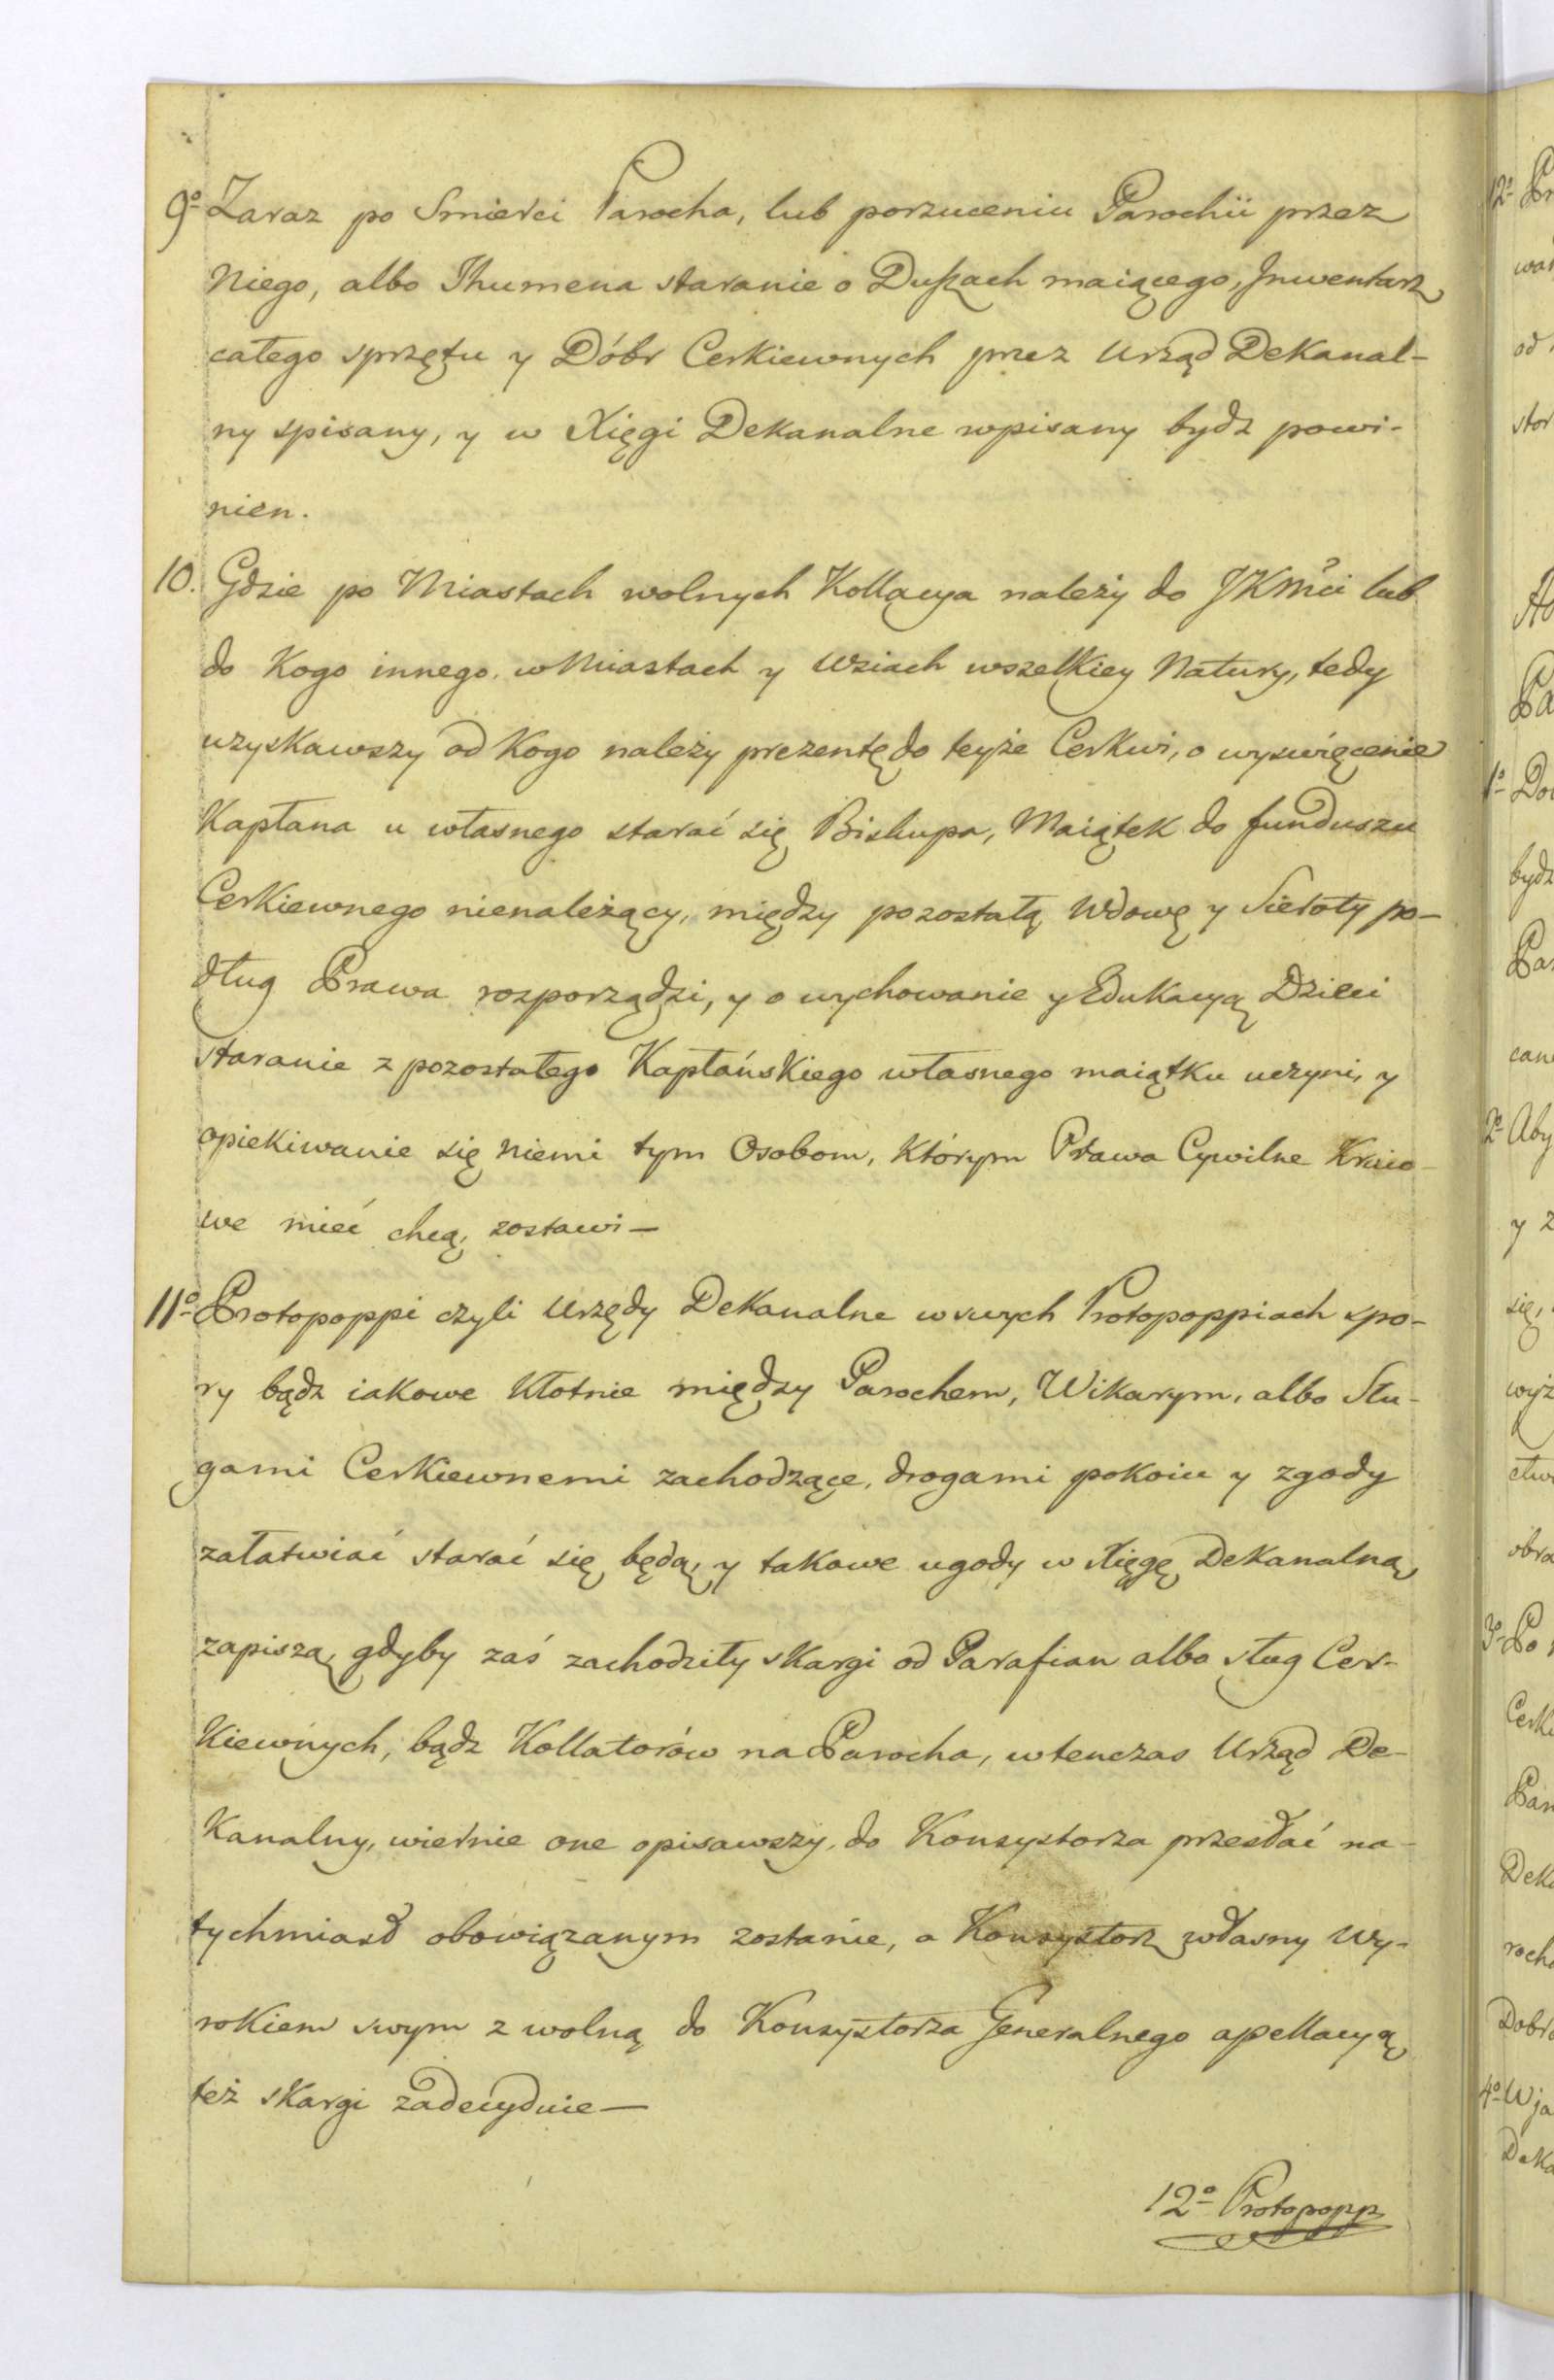 9º Zaraz po Smierci Parocha, lub porzuceniu Parochii przez
Niego, albo Ihumena staranie o Duszach maiącego, Inwentarz
całego sprzętu y Dóbr Cerkiewnych przez Urząd Dekanal-
ny spisany, y w Xięgi Dekanalne wpisany bydz powi-
nien.
10. Gdzie po Miastach wolnych Kollacya należy do JKMci lub
do Kogo innego, w Miastach y Wsiach wszelkiey Natury, tedy
uzyskawszy od Kogo należy prezentę do teyże Cerkwi, o wyswięcenie
Kapłana u własnego starać się Biskupa, Maiątek do funduszu
Cerkiewnego nienależący, między pozostałą Wdowę y Sieroty po-
dług Prawa rozporządzi, y o wychowanie y Edukacyą Dzieci
staranie z pozostałego Kapłańskiego własnego maiątku uczyni, y
opiekiwanie się niemi tym Osobom, którym Prawa Cywilne Kraio-
we mieć chcą, zostawi —
11º Protopoppi czyli Urzędy Dekanalne w swych Protopoppiach spo-
ry bądz iakowe kłotnie między Parochem, Wikarym, albo Słu-
gami Cerkiewnemi zachodzące, drogami pokoiu y zgody
załatwiać starać się będą, y takowe ugody w Xięgę Dekanalną
zapiszą, gdyby zaś zachodziły skargi od Parafian albo sług Cer-
kiewnych, bądz Kollatorów na Parocha, wtenczas Urząd De-
kanalny, wiernie one opisawszy, do Konsystorza przesłać na-
tychmiast obowiązanym zostanie, a Konsystorz własny Wy-
rokiem swym z wolną do Konsystorza Generalnego apellacyą
też skargi zadecyduie —
12º Protopopp